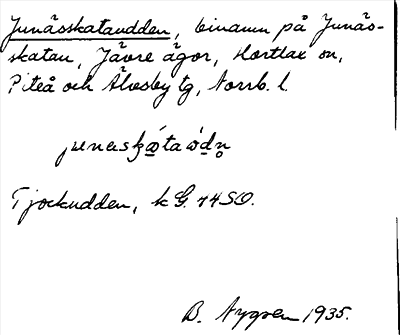 Junässkataudden, binamn på Junäs-
skatan, Jävre ägor, Hortlax sn,
Piteå och Älvsby tg, Norrb. l.
Tjockudden, k G. 44SO.
B. Nygren 1935.